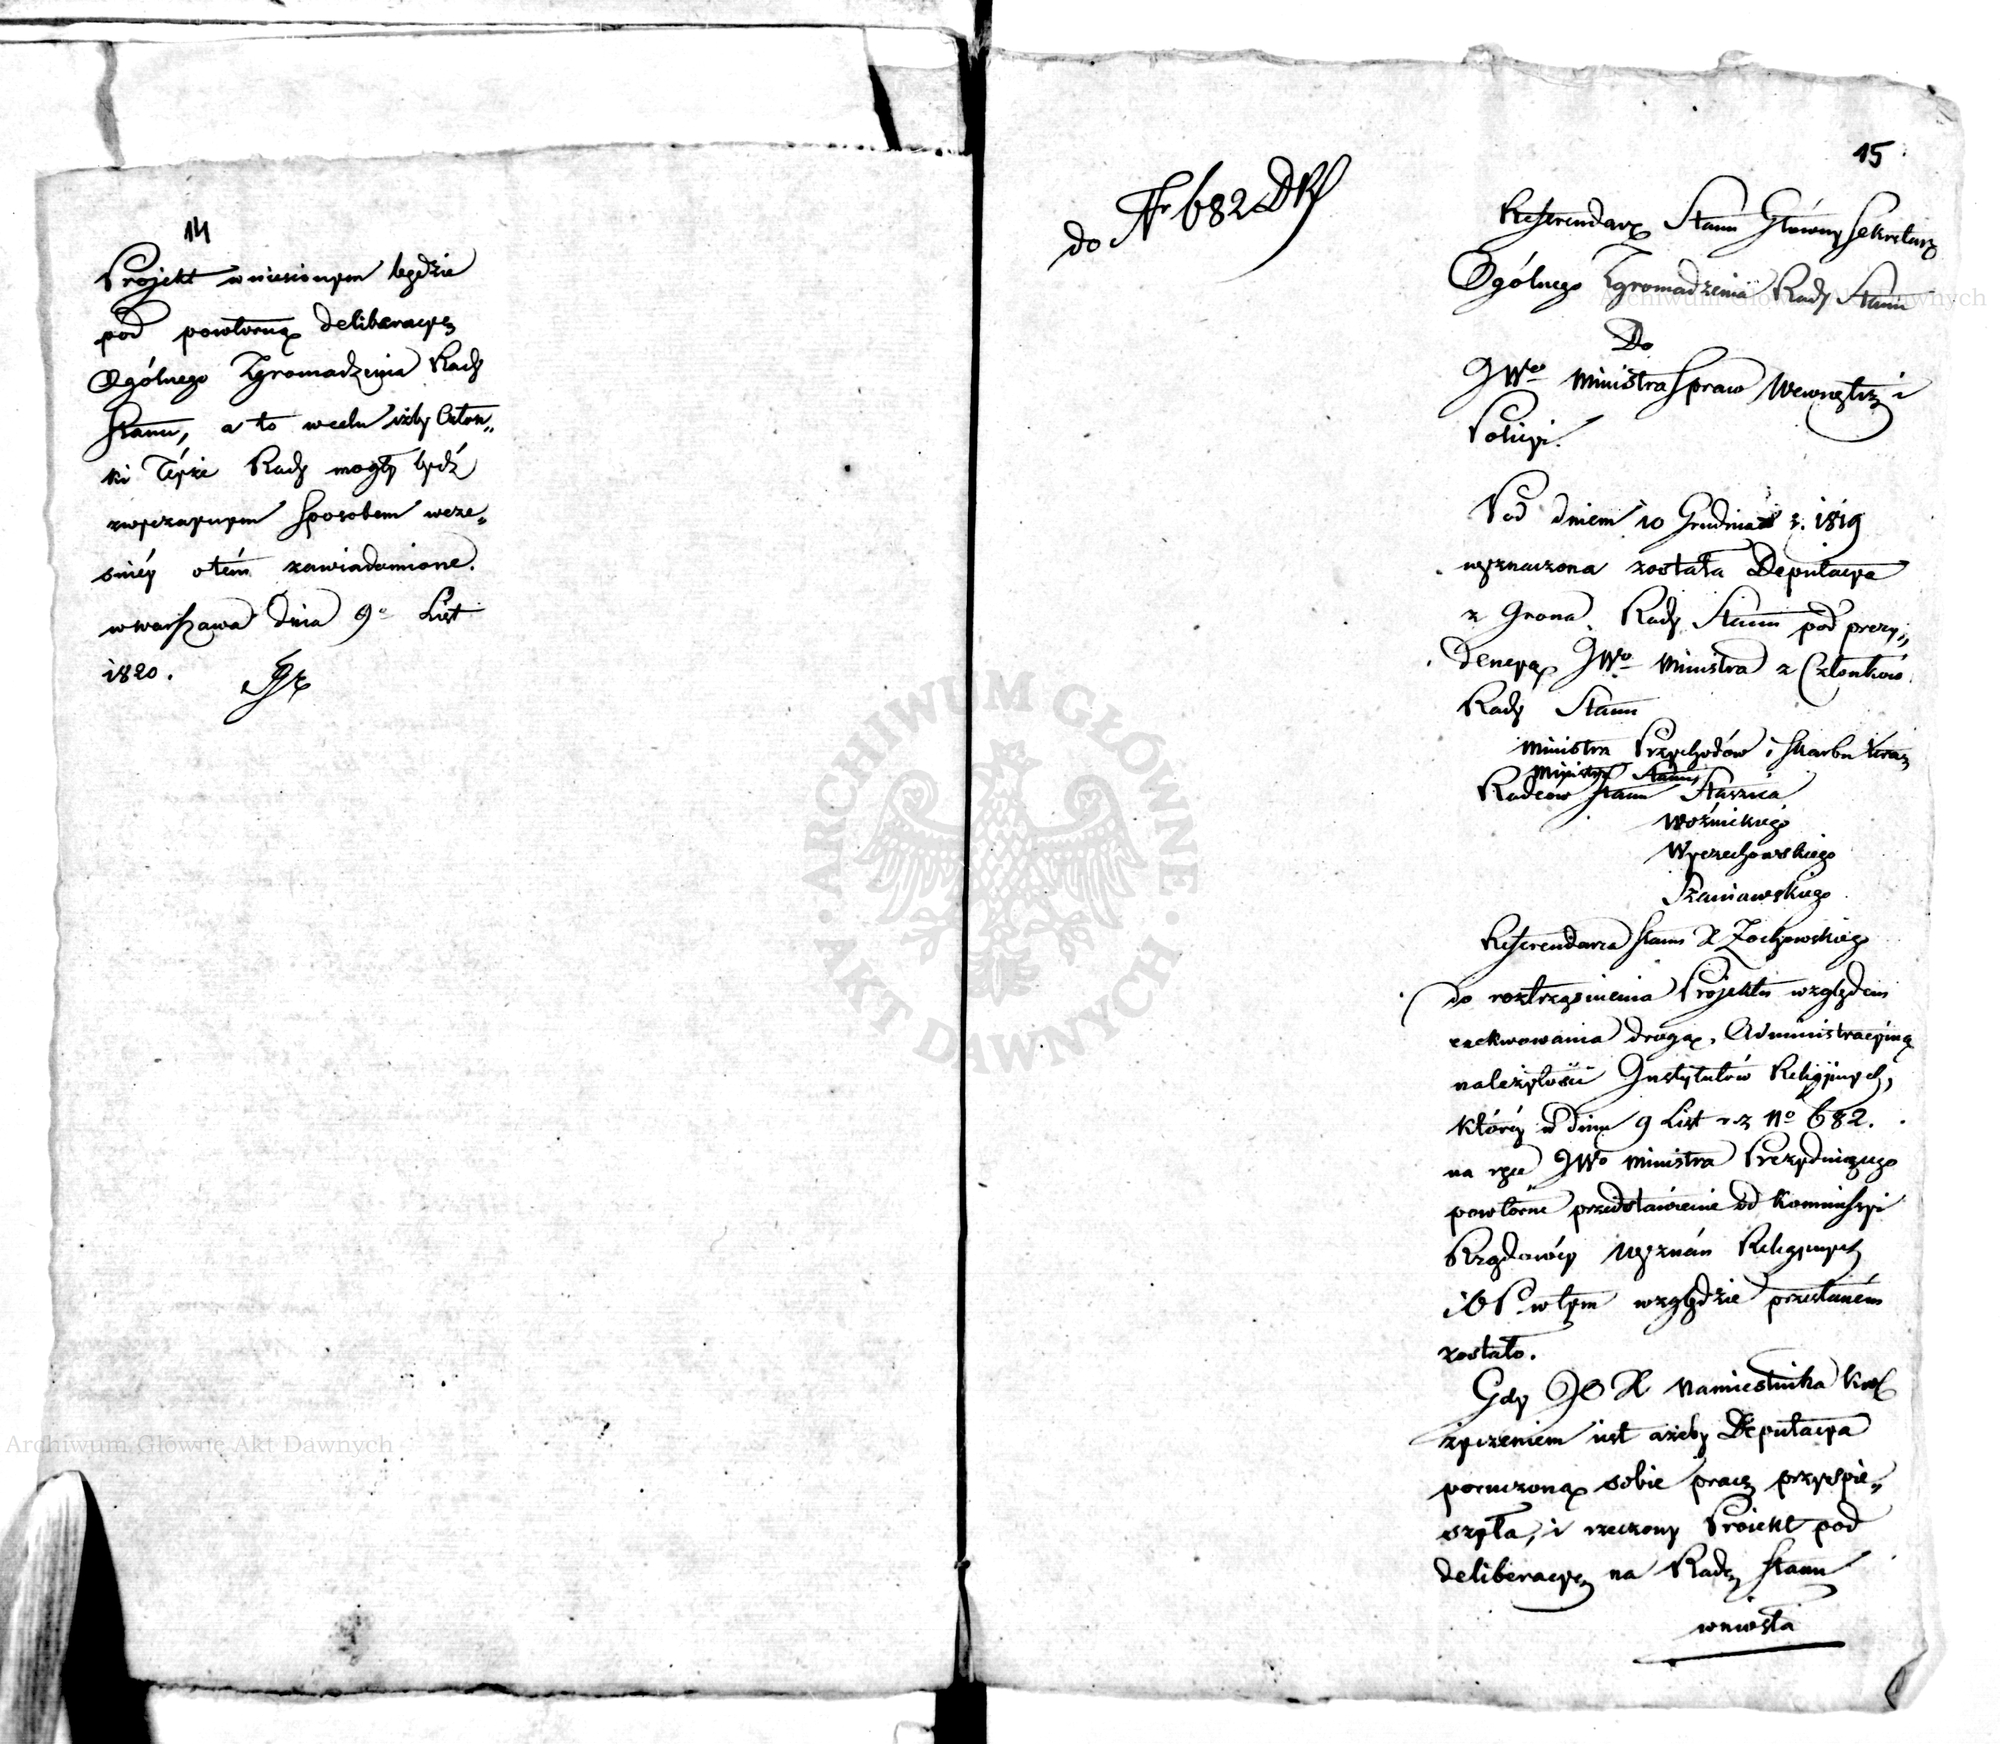 14
Projekt wniesionym będzie
pod powtorną deliberacyę
Ogólnego Zgromadzenia Rady
Stanu, a to w celu iżby Człon„
ki Téyże Rady mogły bydź
zwyczaynym sposobem wcze„
śniéy otém zawiadomione.
w Warszawa dnia 9o List
1820.
15
do Nr 682 DRS
Referendarz Stanu Główny Sekretarz
Ogólnego Zgromadzenia Rady Stanu
Do
JWo Ministra Spraw Wewnętrz i
Policyi.
Pod dniem 10 Grudnia r. 1819
wyznaczona została Deputacya
z Grona Rady Stanu pod prezy„
dencyą JWo Ministra z Członków
Rady Stanu
Ministra Przychodów i Skarbu
Ministra Stanu
Radców Stanu Staszica
Woźnickiego
Wyczechowskiego
Szaniawskiego
Referendarza Stanu X Żochowskiego
do roztrząsnienia Projektu względem
exekwowania drogą Administracyiną
należytości Instytutów Religijnych,
któréy w dniu 9 List r z No 682.
na ręce JWo Ministra Prezyduiącego
powtórne przedstawienie od Kommissyi
Rządowéy Wyznań Religijnych
i O P. w tym względzie przesłaném
zostało.
Gdy JO X Namiestnika Król
życzeniem iest ażeby Deputacya
poruczoną sobie pracę przyspie„
szyła, i rzeczony Proiekt pod
deliberacyę na Radę Stanu
wniosła
ARCHIWUM GŁÓWNE · AKT DAWNYCH ·
Archiwum Główne Akt Dawnych
Archiwum Główne Akt Dawnych